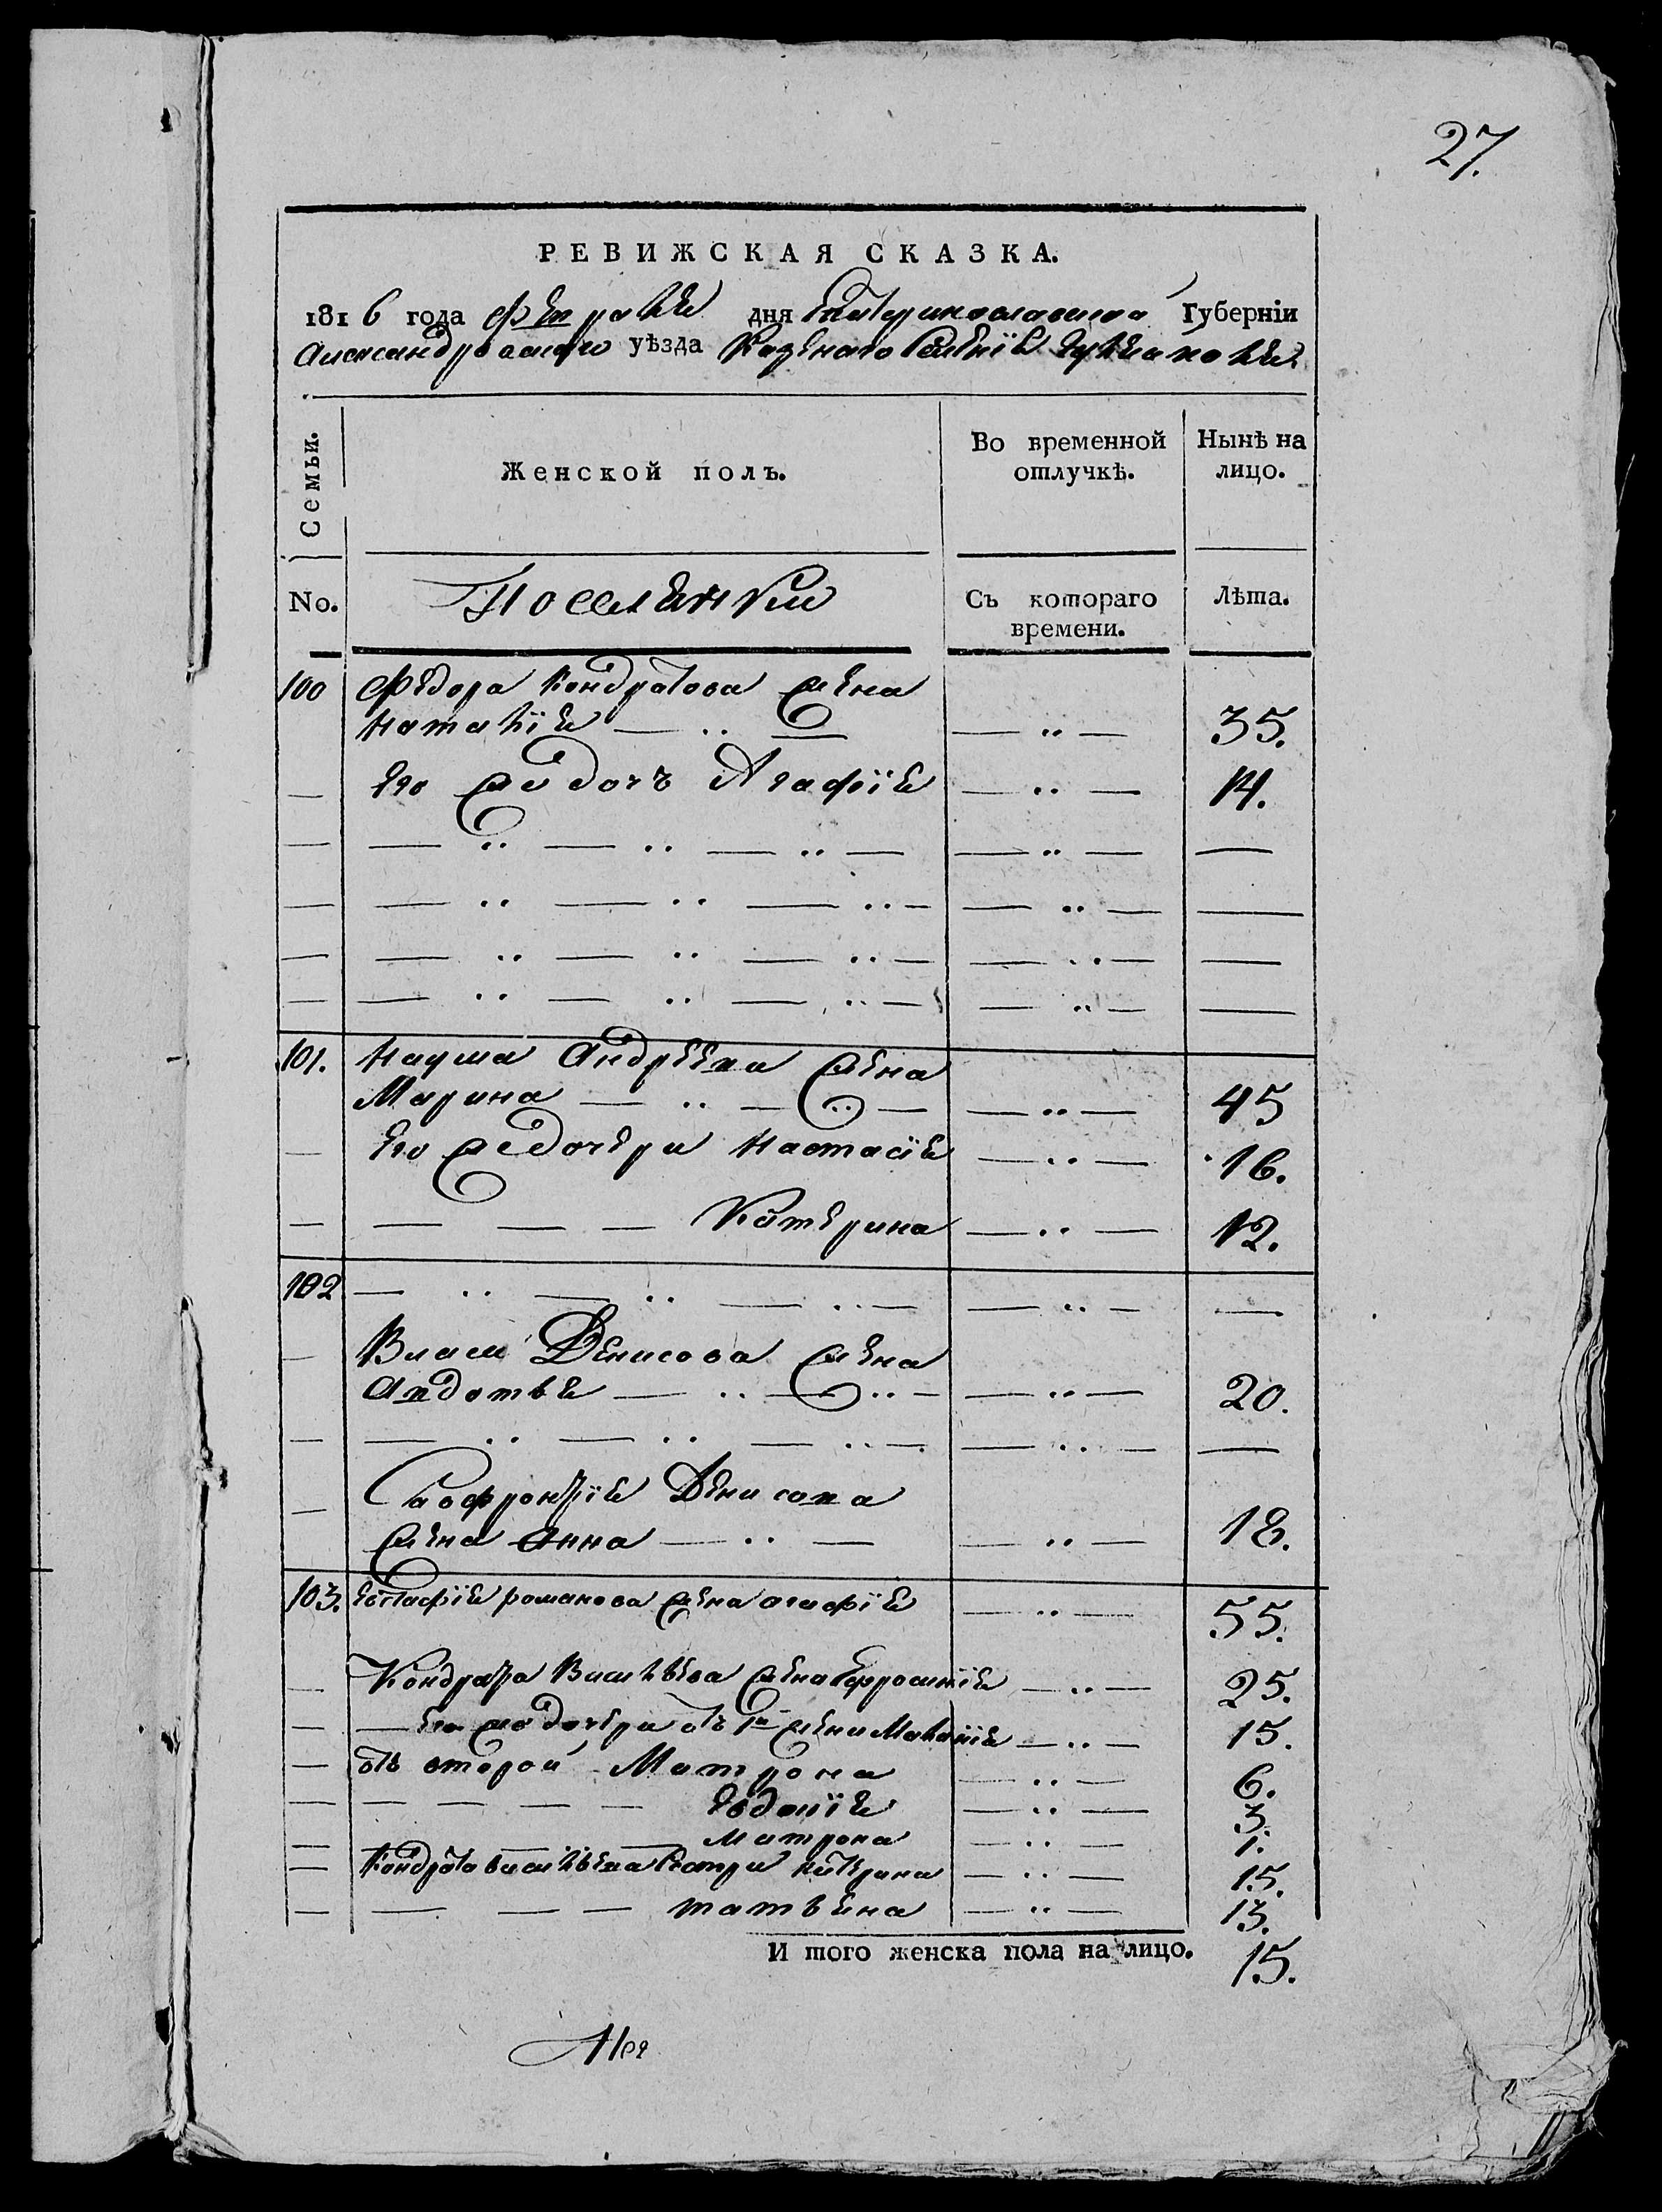 27.
РЕВИЖСКАЯ СКАЗКА.
1816 года февраля дня Екатеринославской Губерніи
Александровскаго уѣзда Казенаго Селенія
Семьи.
Женской полъ.
Во временной отлучкѣ.
Нынѣ на лицо.
No.
Поселянки
Съ котораго времени.
Лѣта.
100 Федора Кондратова жена
Наталія — .. — — .. — 35.
— Его же дочь Агафія — .. — 14.
— — .. — .. — .. — — .. — —
— — .. — .. — .. — — .. — —
— — .. — .. — .. — — .. — —
— — .. — .. — .. — — .. — —
101. Наума Андреева жена
Марина — .. — .. — — .. — 45
— Его же дочери Настасія — .. — 16.
— — — — Катерина — .. — 12.
102 — .. — .. — .. — — .. — —
— Власа Денисова жена
Авдотья — .. — .. — — .. — 20.
— — .. — .. — .. — — .. — —
— Софронія Денисова
жена Анна — .. — — .. — 18.
103. Евстафія романова жена агафія — .. — 55.
— Кондрата Васильева жена Ефросинія — .. — 25.
— — Его же дочери отъ 1й жени Маланія — .. — 15.
— отъ второй Матрона — .. — 6.
— — — — — Евдокія — .. — 3.
— — — Матрона — .. — 1.
— Кондрата васильева сестри катерина — .. — 15.
— — — — татьяна — .. — 13.
И того женска пола на лицо. 15.